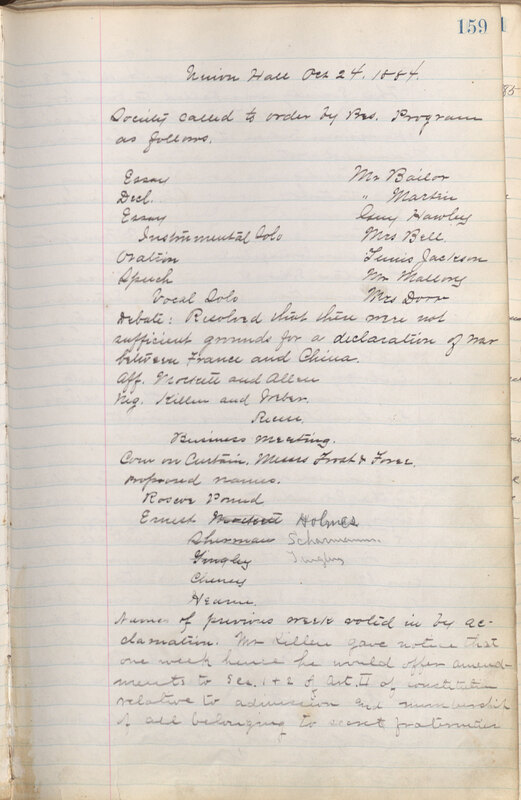 159
Union Hall Oct 24, 1884.
Society called to order by Pres. Program
as follows.
Essay Mr Bailor
Decl. " Martin
Essay Guy Hawley
Instrumental Solo Mrs Bell.
Oration Junis Jackson
Speech Mr Mallory
Vocal Solo Mrs Dorr
Debate: Resolved that there were not
sufficient grounds for a declaration of war
between France and China.
Aff. Mockett and Allen
Neg. Killen and Weber.
Recess.
Business meeting.
Com on Curtain. Messrs Frost &
proposed names.
Roscoe Pound
Ernest Mockett Holmes
Sherman Scharmann
Tingley Tingley
Cheney
Hearne
Names of previous week voted in by ac-
clamation. Mr Killen gave notice that
one week hence he would offer amend-
ments to Sec. 1 + 2 of Art. II of constitution
relative to admission and membership
of all belonging to secret fraternities